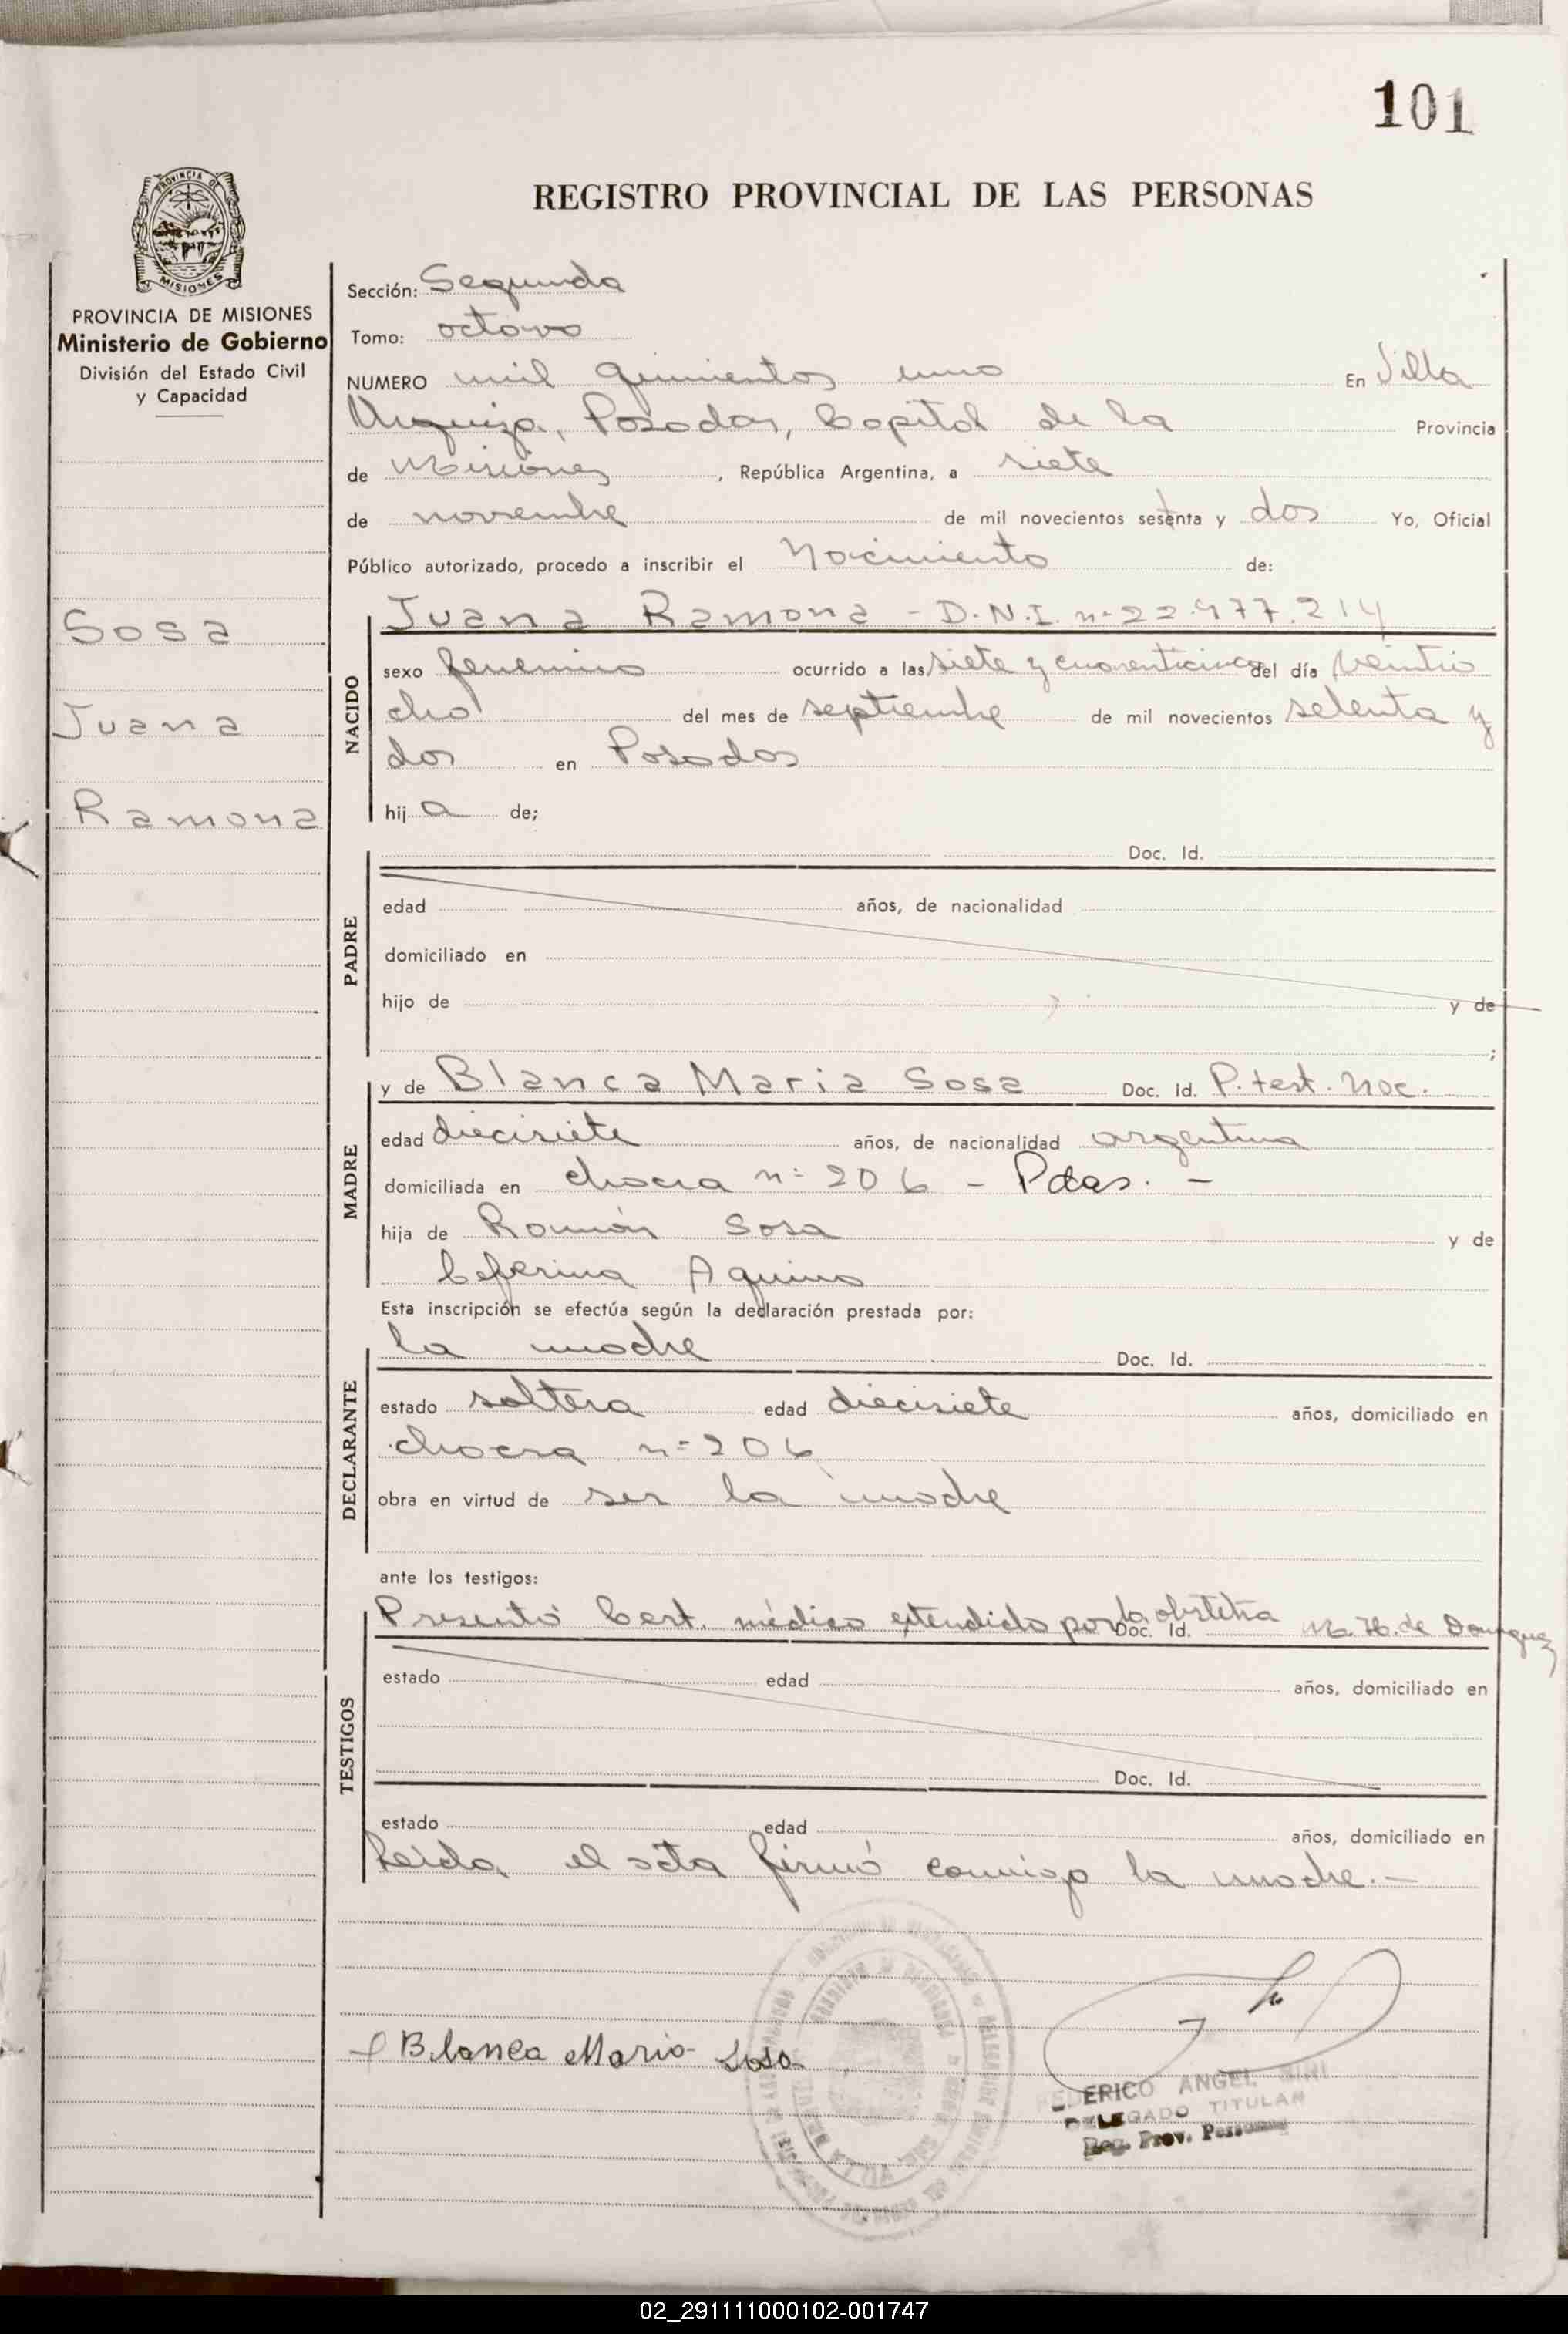 101
REGISTRO PROVINCIAL DE LAS PERSONAS
PROVINCIA DE MISIONES
Ministerio de Gobierno
División del Estado Civil
y Capacidad
Sosa
Juana
Ramona
Sección: Segunda
Tomo: octavo
NUMERO mil quinientos uno En Villa
Urquiza, Posadas, Capital de la Provincia
de Misiones, República Argentina, a siete
de noviembre de mil novecientos setenta y dos Yo, Oficial
Público autorizado, procedo a inscribir el Nacimiento de:
NACIDO
Juana Ramona - D.N.I. nº 22.977.214
sexo femenino ocurrido a las siete y cuarenticinco del día veintio
cho del mes de septiembre de mil novecientos setenta y
dos en Posadas
hija de;
PADRE
Doc. Id.
edad años, de nacionalidad
domiciliado en
hijo de y de
;
MADRE
y de Blanca Maria Sosa Doc. Id. P. test. Nac.
edad diecisiete años, de nacionalidad argentina
domiciliada en chacra nº 206 - Pdas. -
hija de Román Sosa y de
Ceferina Aquino
Esta inscripción se efectúa según la declaración prestada por:
DECLARANTE
la madre Doc. Id.
estado soltera edad diecisiete años, domiciliado en
chacra nº 206
obra en virtud de ser la madre
ante los testigos:
TESTIGOS
Presentó Cert. médico extendido por la obstetra Doc. Id. M. H. de
estado edad años, domiciliado en
Doc. Id.
estado edad años, domiciliado en
Leída el acta firmó conmigo la madre.-
Blanca Maria Sosa
FEDERICO ANGEL
DELEGADO TITULAR
Reg. Prov. Personas
02_291111000102-001747